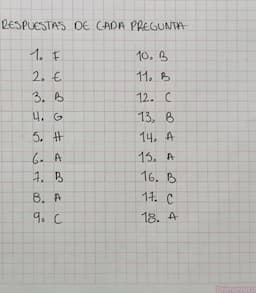 RESPUESTAS DE CADA PREGUNTA
1. F
2. E
3. B
4. G
5. H
6. A
7. B
8. A
9. C
10. B
11. B
12. C
13. B
14. A
15. A
16. B
17. C
18. A